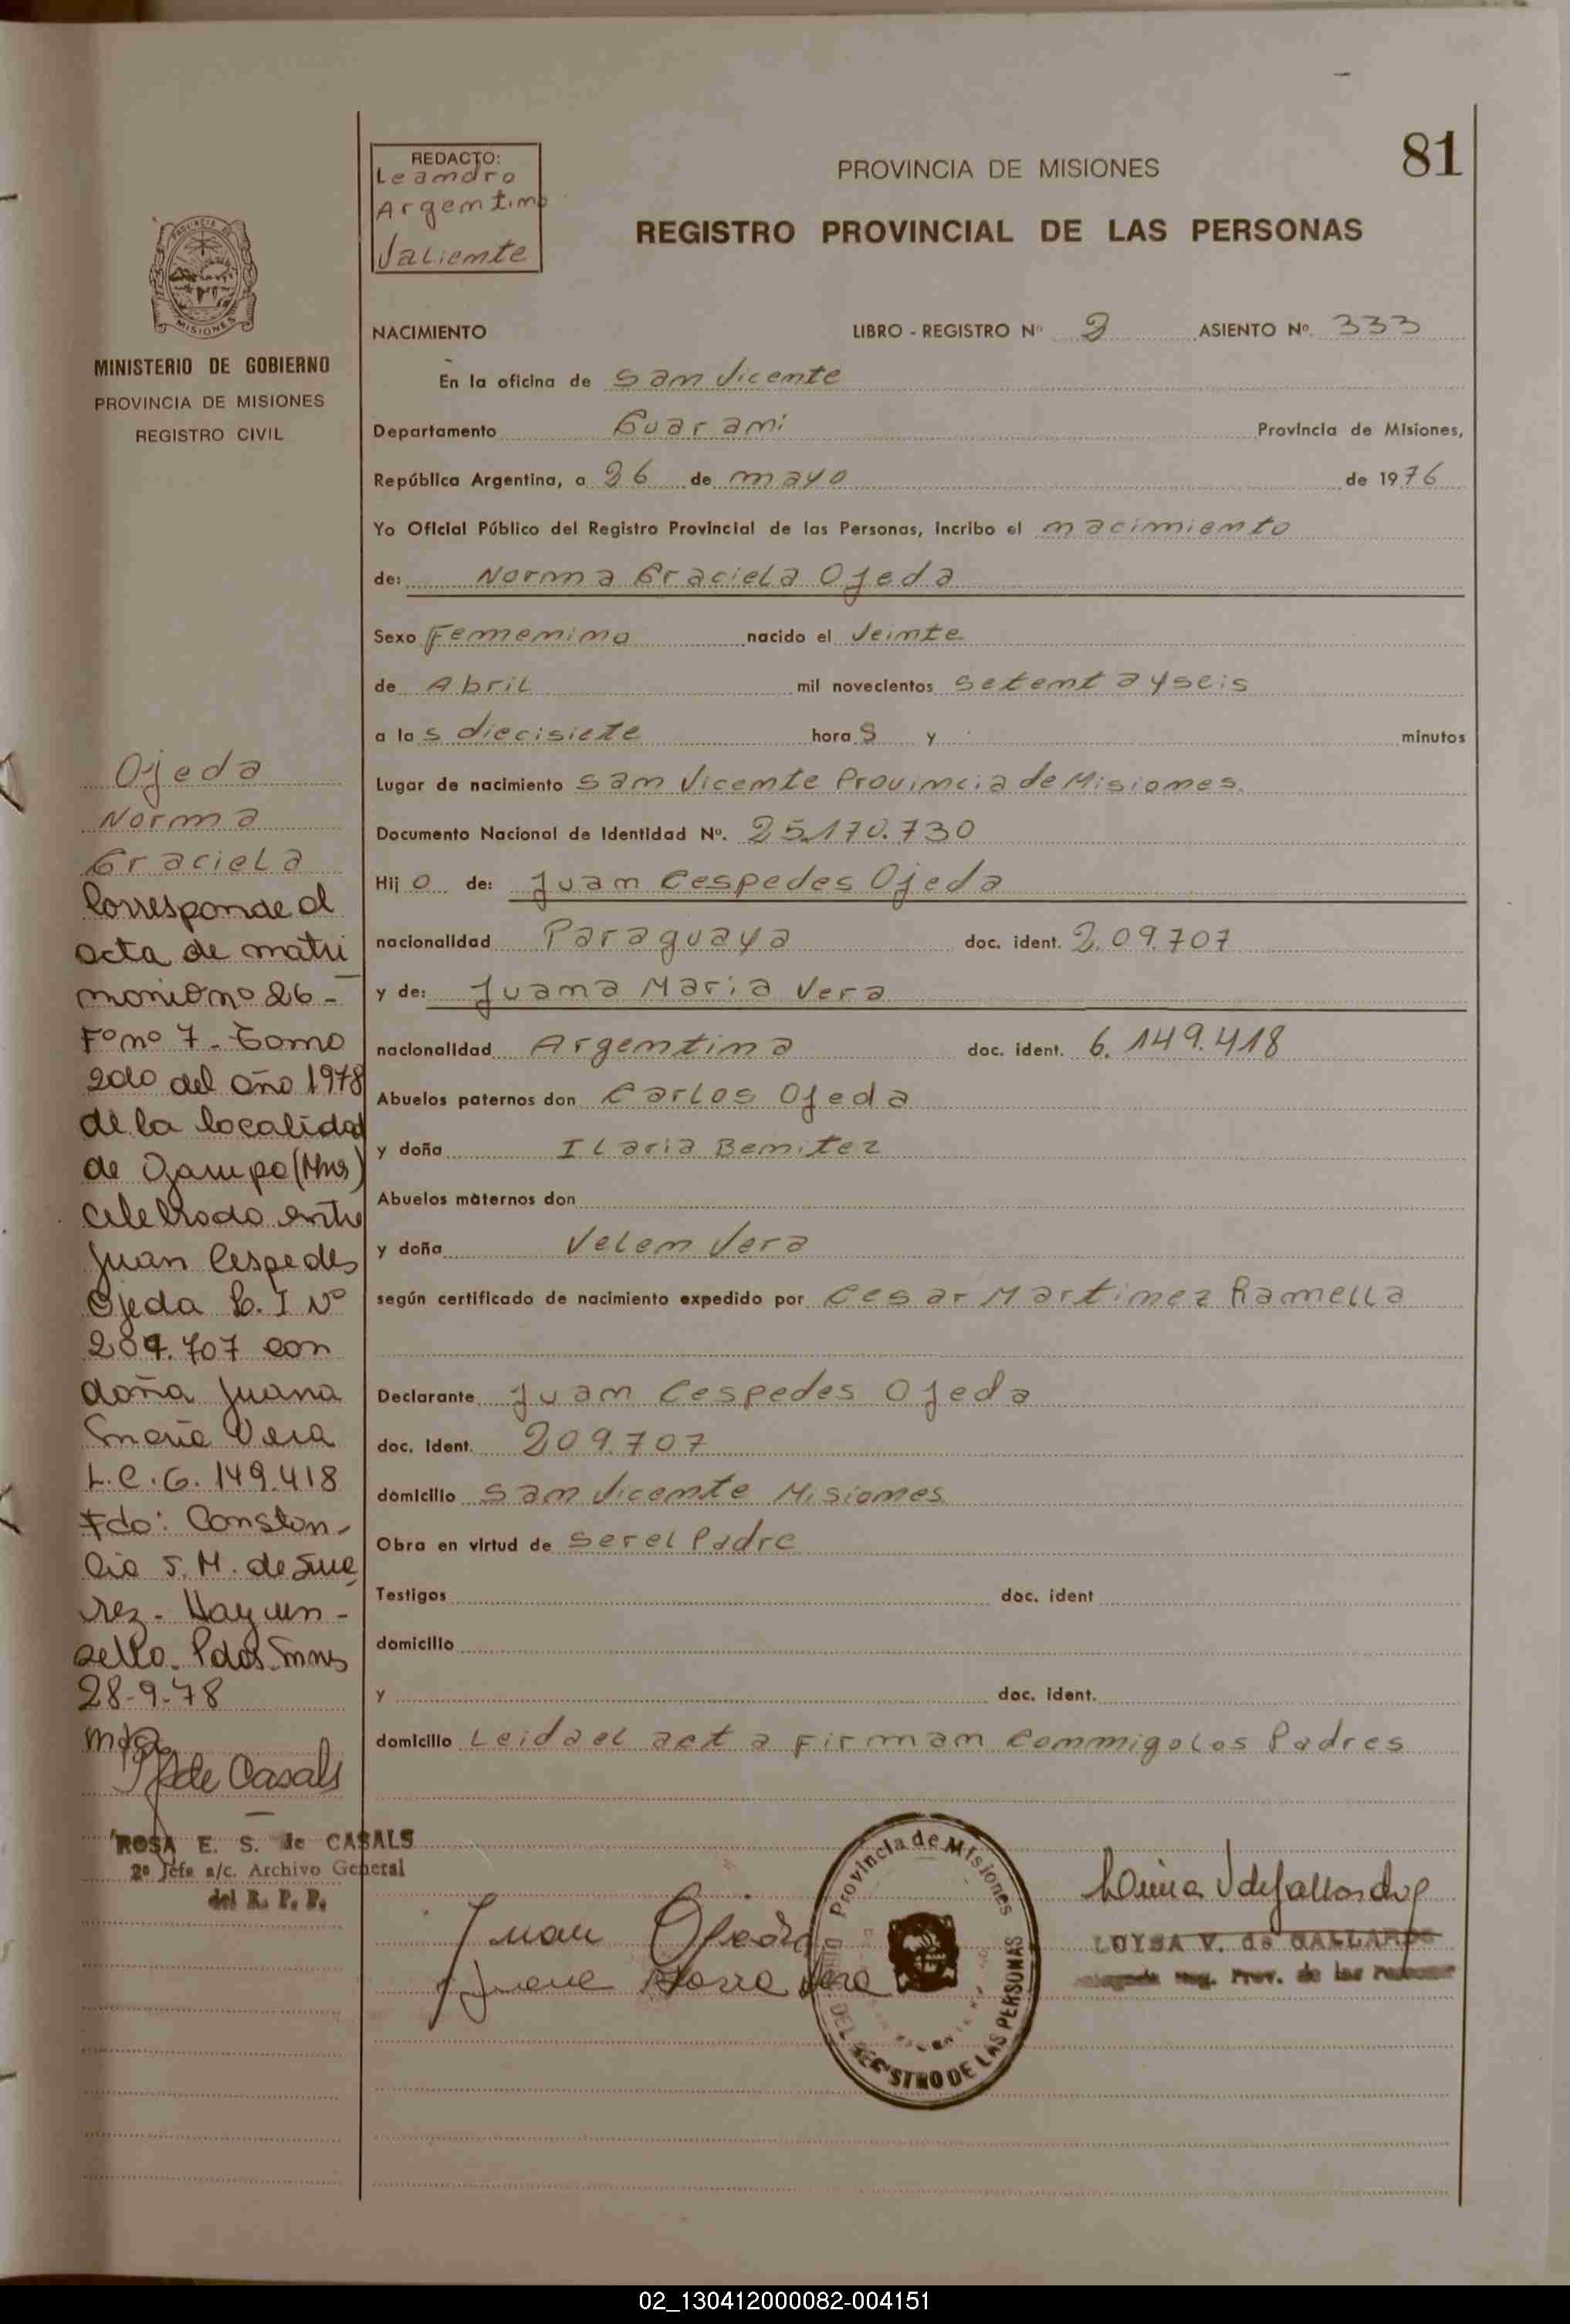 81
REDACTO:
Leandro
Argentino
Valiente
PROVINCIA DE MISIONES
REGISTRO PROVINCIAL DE LAS PERSONAS
PROVINCIA DE
MISIONES
MINISTERIO DE GOBIERNO
PROVINCIA DE MISIONES
REGISTRO CIVIL
NACIMIENTO LIBRO - REGISTRO Nº 2 ASIENTO Nº. 333
En la oficina de San Vicente
Departamento Guarani Provincia de Misiones,
República Argentina, a 26 de mayo de 1976
Yo Oficial Público del Registro Provincial de las Personas, incribo el nacimiento
de: Norma Graciela Ojeda
Sexo Femenino nacido el Veinte
de Abril mil novecientos Setentayseis
a las diecisiete horas y minutos
Lugar de nacimiento San Vicente Provincia de Misiones.
Documento Nacional de Identidad Nº. 25.170.730
Hijo de: Juan Cespedes Ojeda
nacionalidad Paraguaya doc. ident. 2.09.707
y de: Juana Maria Vera
nacionalidad Argentina doc. ident. 6.149.418
Abuelos paternos don Carlos Ojeda
y doña Ilaria Benitez
Abuelos maternos don
y doña Velen Vera
según certificado de nacimiento expedido por Cesar Martinez Ramella
Declarante Juan Cespedes Ojeda
doc. Ident. 209.707
domicilio San Vicente Misiones
Obra en virtud de Ser el Padre
Testigos doc. ident
domicilio
y doc. ident.
domicilio Leida el acta Firman Conmigo los Padres
Ojeda
Norma
Graciela
Corresponde al
acta de matri
monio nº 26 -
Fº nº 7 - Tomo
2do del año 1978
de la localidad
de Garupa (Mnes)
celebrado entre
Juan Cespedes
Ojeda C. I Nº
209.707 con
doña Juana
Maria Vera
L.C. 6.149.418
Fdo: Constan-
cia S. M. de Sua
rez - Hay un -
sello. Pdas. Mnes
28-9-78
de Casals
ROSA E. S. de CASALS
2º Jefe a/c. Archivo General
del R. P. P.
Juan Ojeda
Juana Maria Vera
Provincia de Misiones
DEL REGISTRO DE LAS PERSONAS
LOYSA V. de GALLARDO
Reg. Prov. de las Personas
02_130412000082-004151